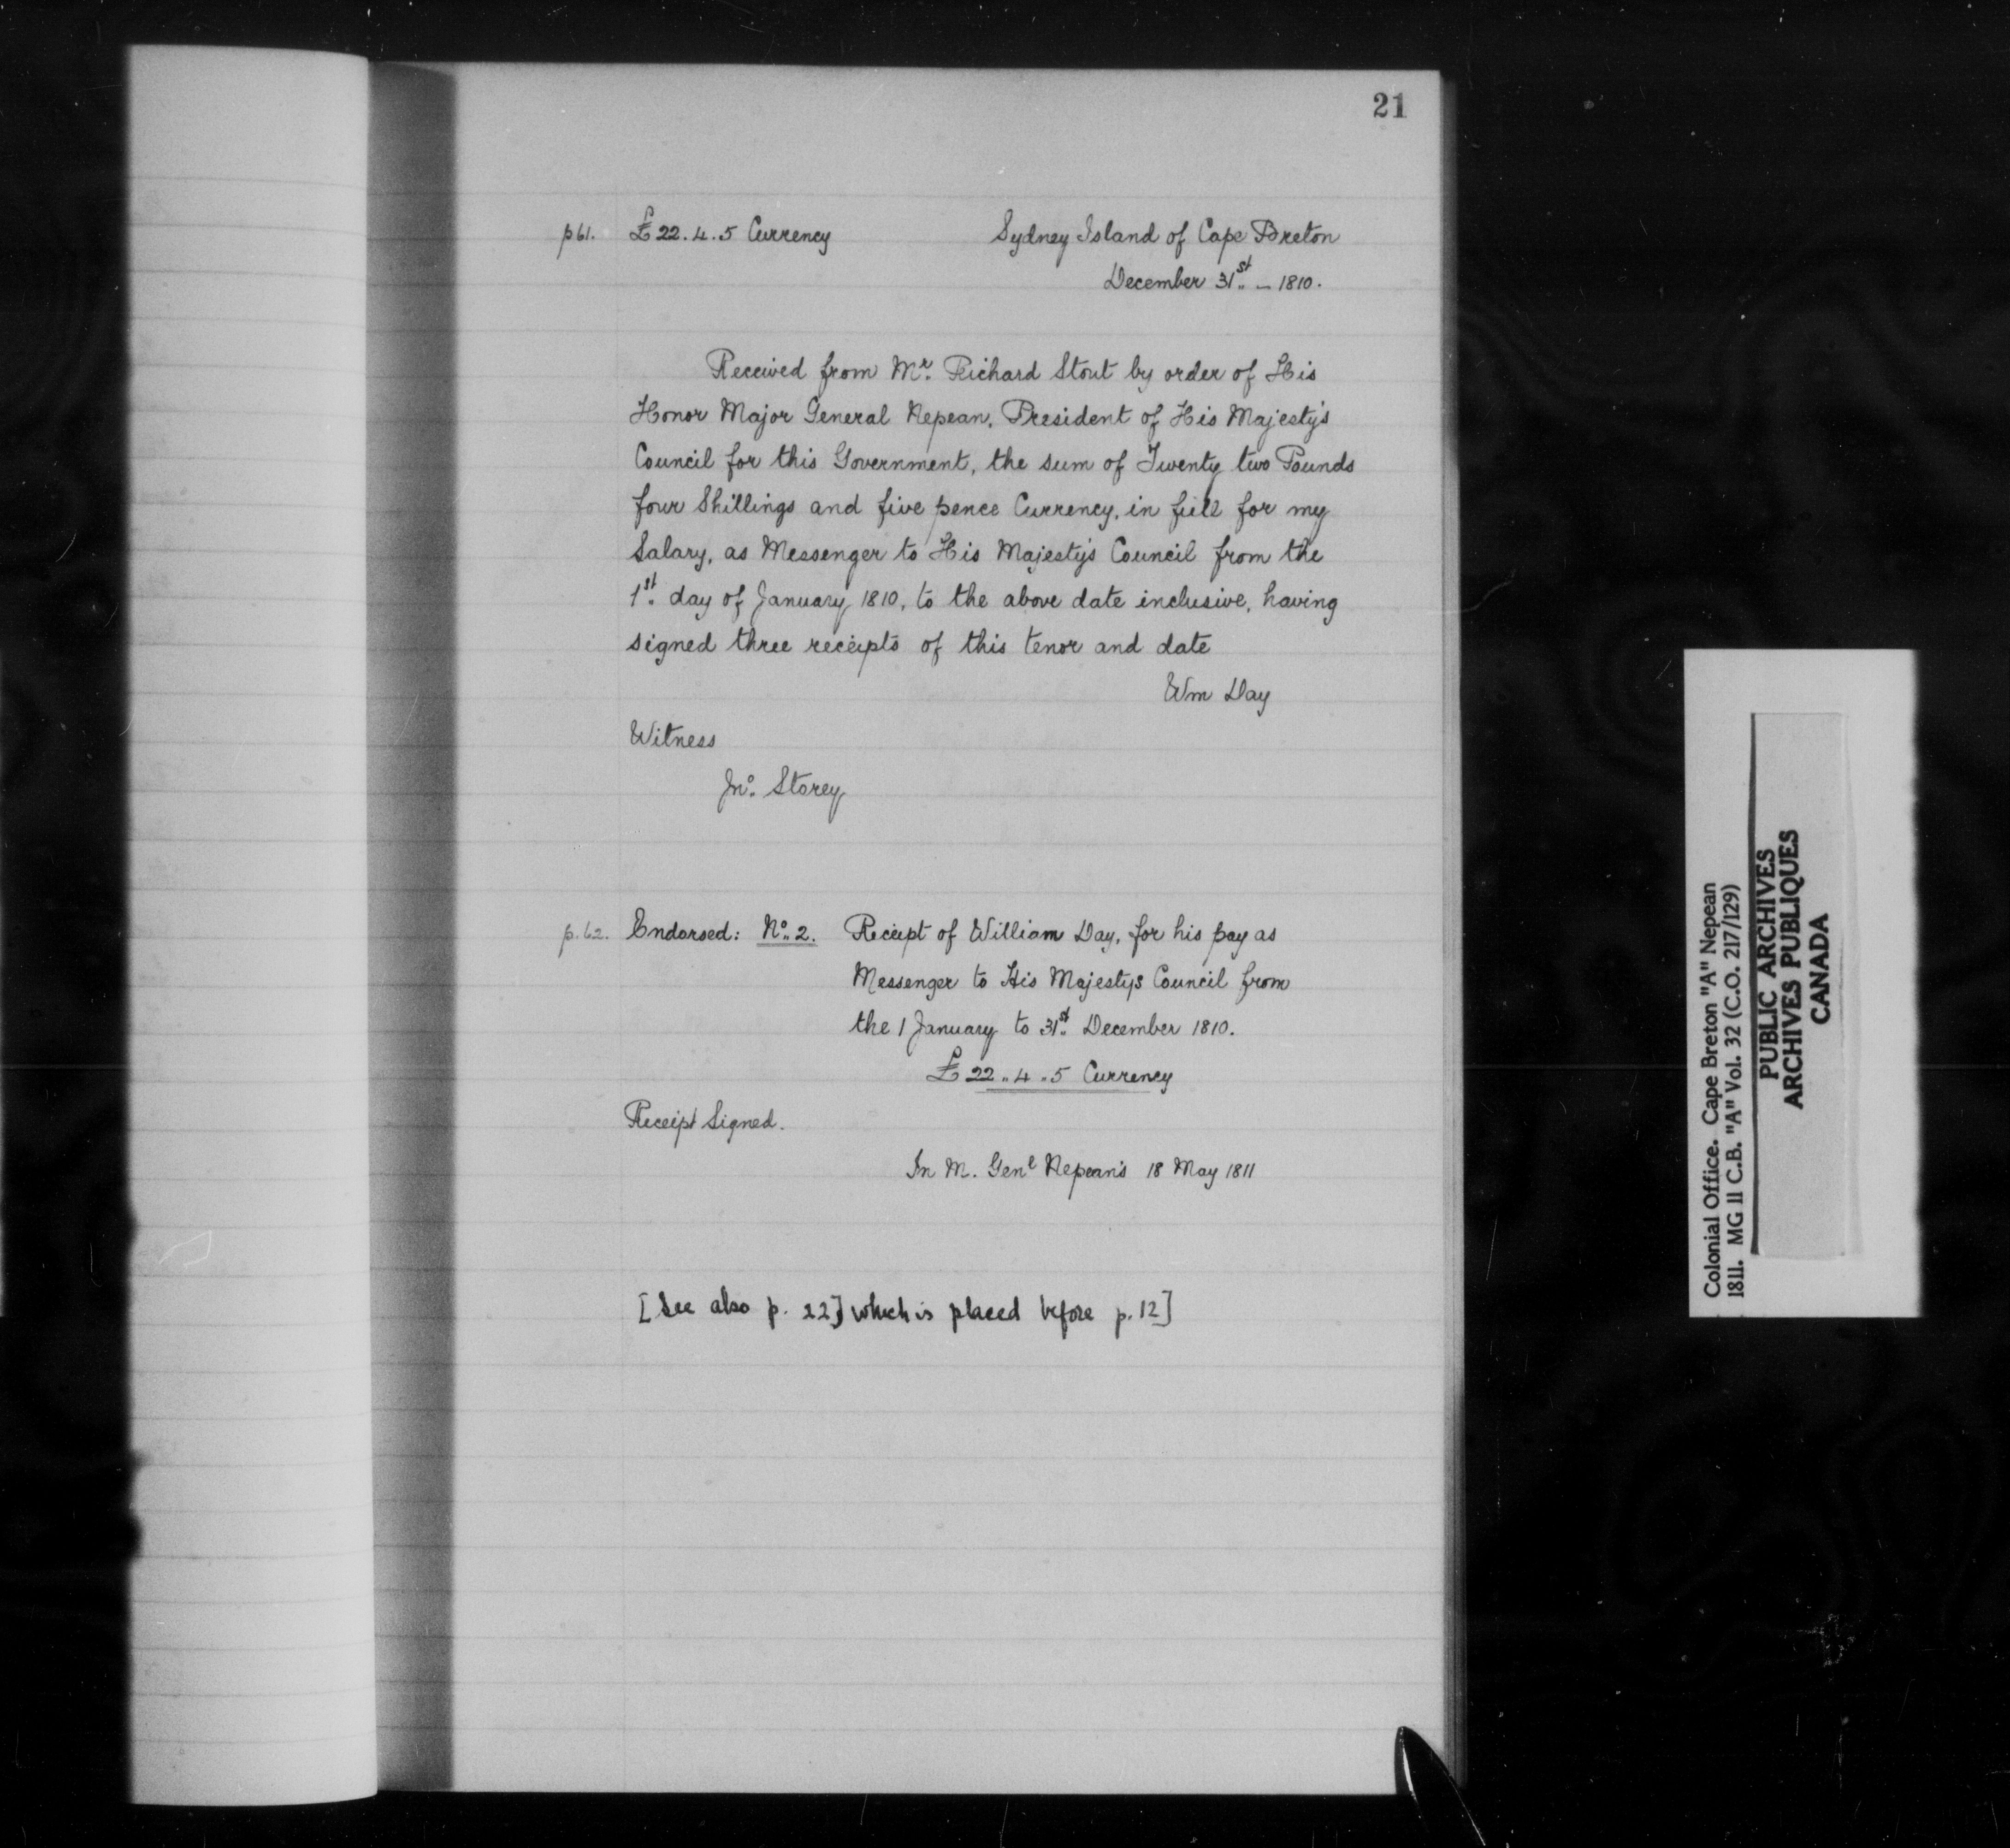 21
p 61. £ 22. 4. 5 Currency Sydney Island of Cape Breton
December 31st. – 1810.
Received from Mr. Richard Stout by order of His
Honor Major General Nepean, President of His Majesty's
Council for this Government, the sum of Twenty two Pounds
four Shillings and five pence Currency, in full for my
Salary, as Messenger to His Majesty's Council from the
1st. day of January 1810, to the above date inclusive, having
signed three receipts of this tenor and date
Wm Day
Witness
Jno. Storey
p. 62. Endorsed: No. 2. Receipt of William Day, for his pay as
Messenger to His Majestys Council from
the 1 January to 31st. December 1810.
£ 22 .. 4 .. 5 Currency
Receipt Signed.
In M. Genl Nepean's 18 May 1811
[See also p. 22] which is placed before p. 12]
Colonial Office. Cape Breton "A" Nepean
1811. MG 11 C.B. "A" Vol. 32 (C.O. 217/129)
PUBLIC ARCHIVES
ARCHIVES PUBLIQUES
CANADA